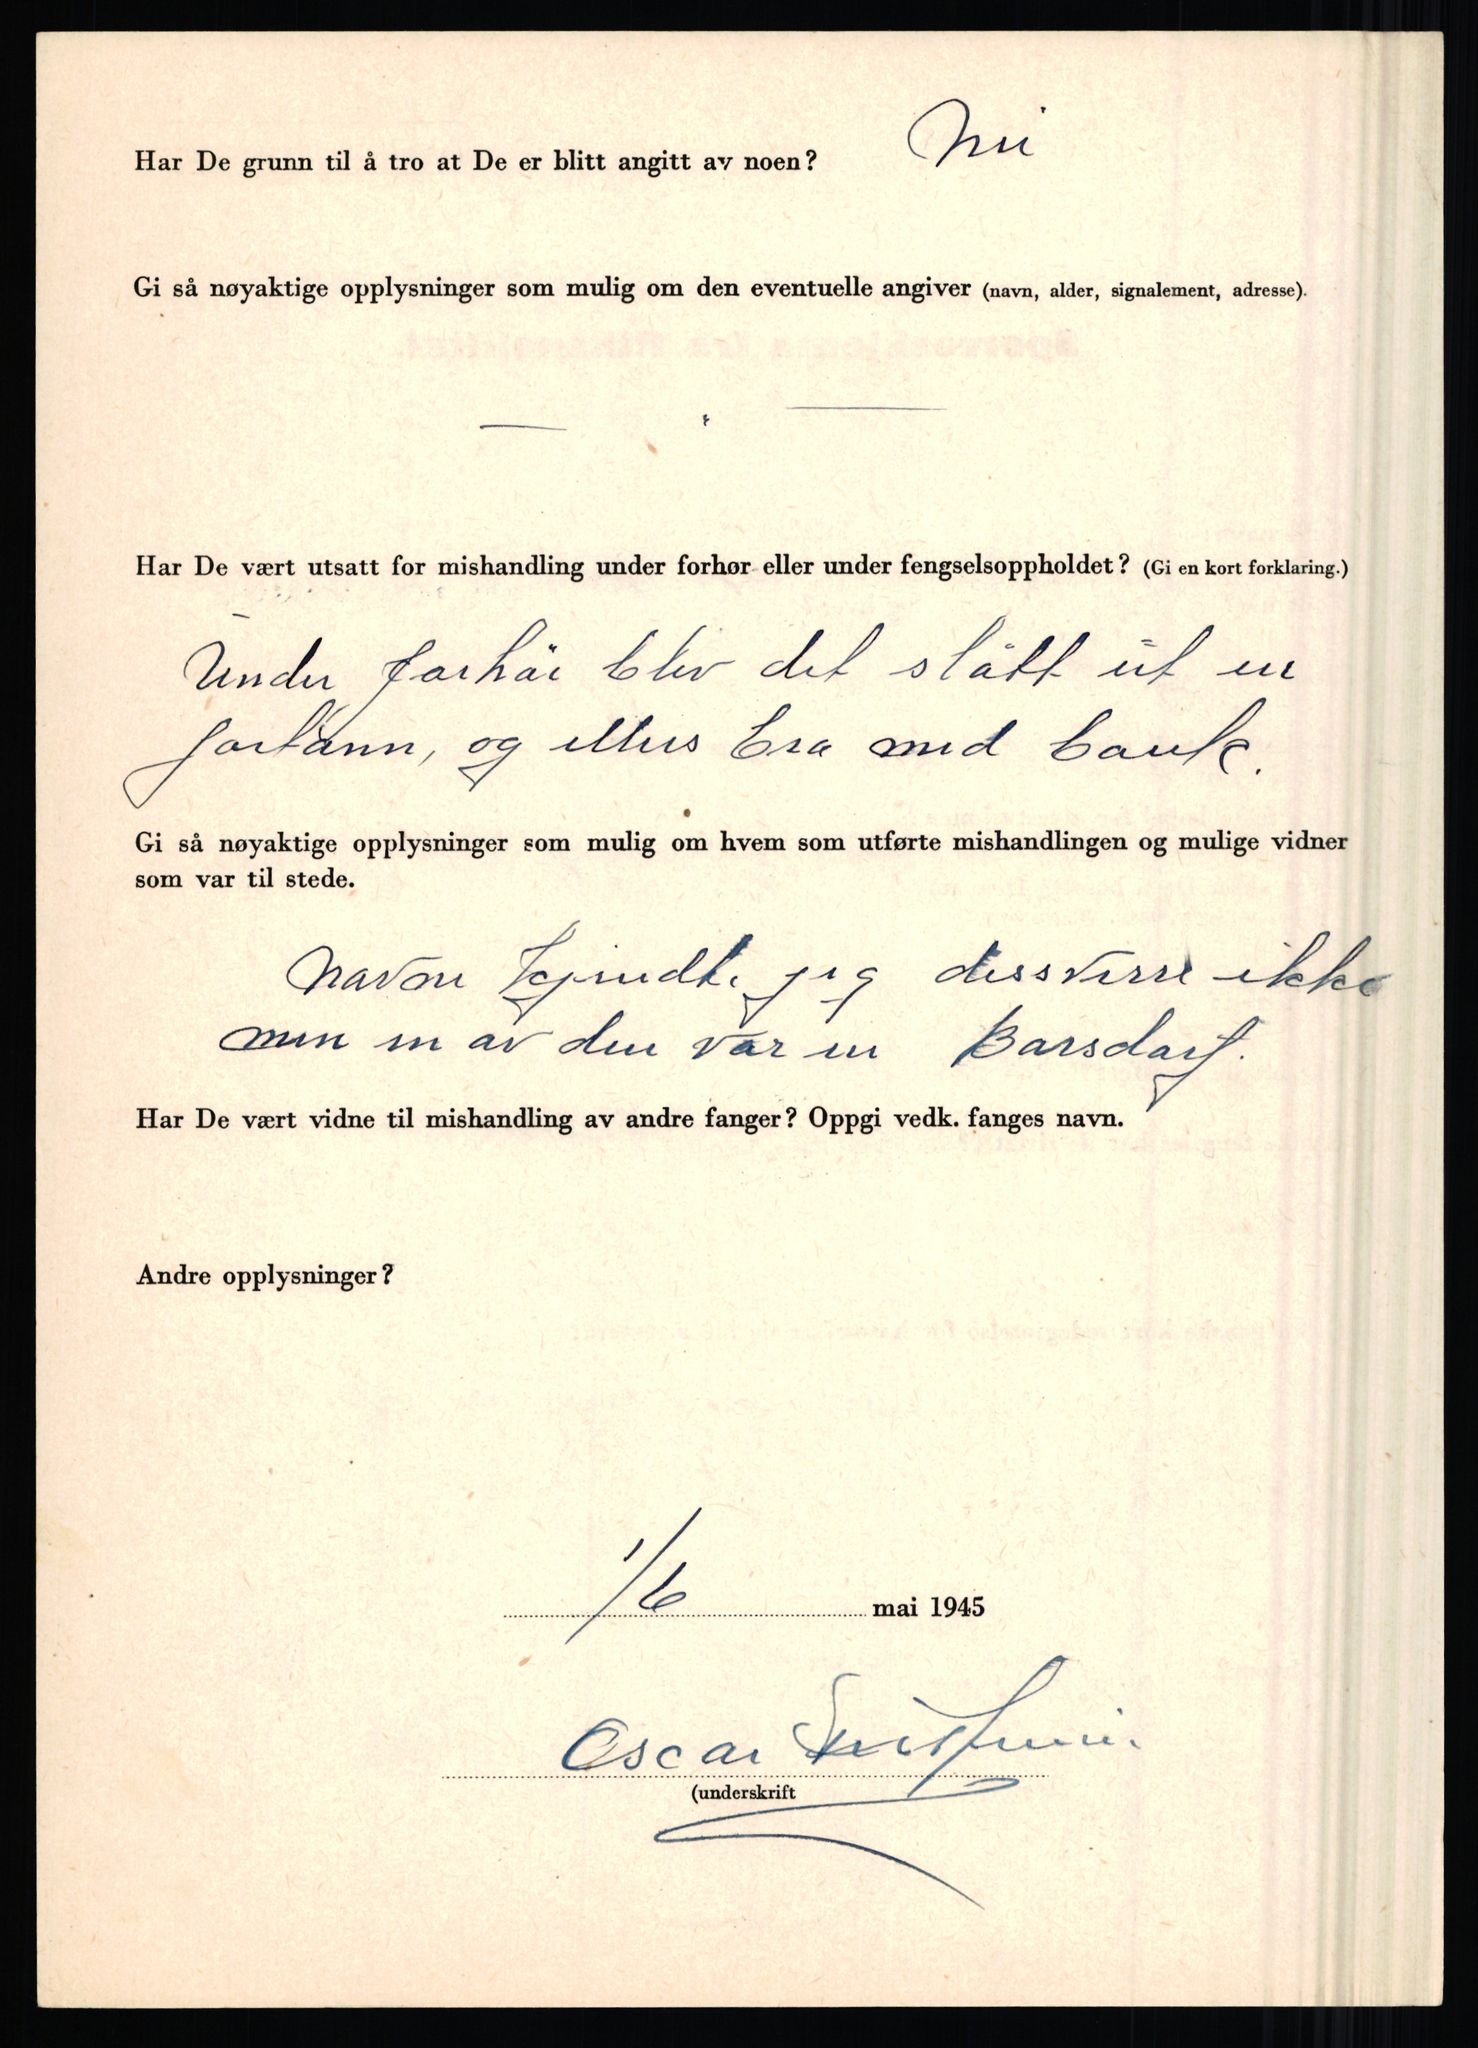 Har De grunn til å tro at De er blitt angitt av noen? Nei
Gi så nøyaktige opplysninger som mulig om den eventuelle angiver (navn, alder, signalement, adresse).
Har De vært utsatt for mishandling under forhør eller under fengselsoppholdet? (Gi en kort forklaring.)
Under forhör blev det slått ut en
fortann, og ellers bra med bank.
Gi så nøyaktige opplysninger som mulig om hvem som utførte mishandlingen og mulige vidner
som var til stede.
Navne kjendte jeg dessverre ikke
men en av den var en Barsdorf.
Har De vært vidne til mishandling av andre fanger? Oppgi vedk. fanges navn.
Andre opplysninger?
1/6 mai 1945
Oscar
(underskrift